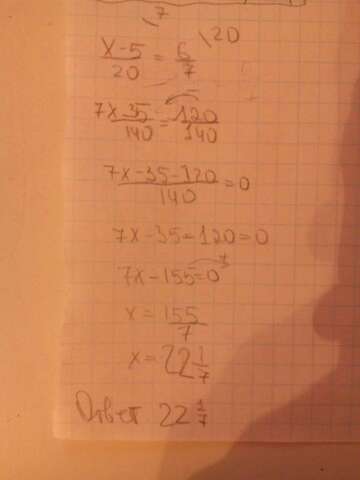 \7 \20
x-5/20 = 6/7
7x-35/140 = 120/140
7x-35-120/140 = 0
7x-35-120=0
7x-155=0
x=155/7
x=22 1/7
Ответ 22 1/7